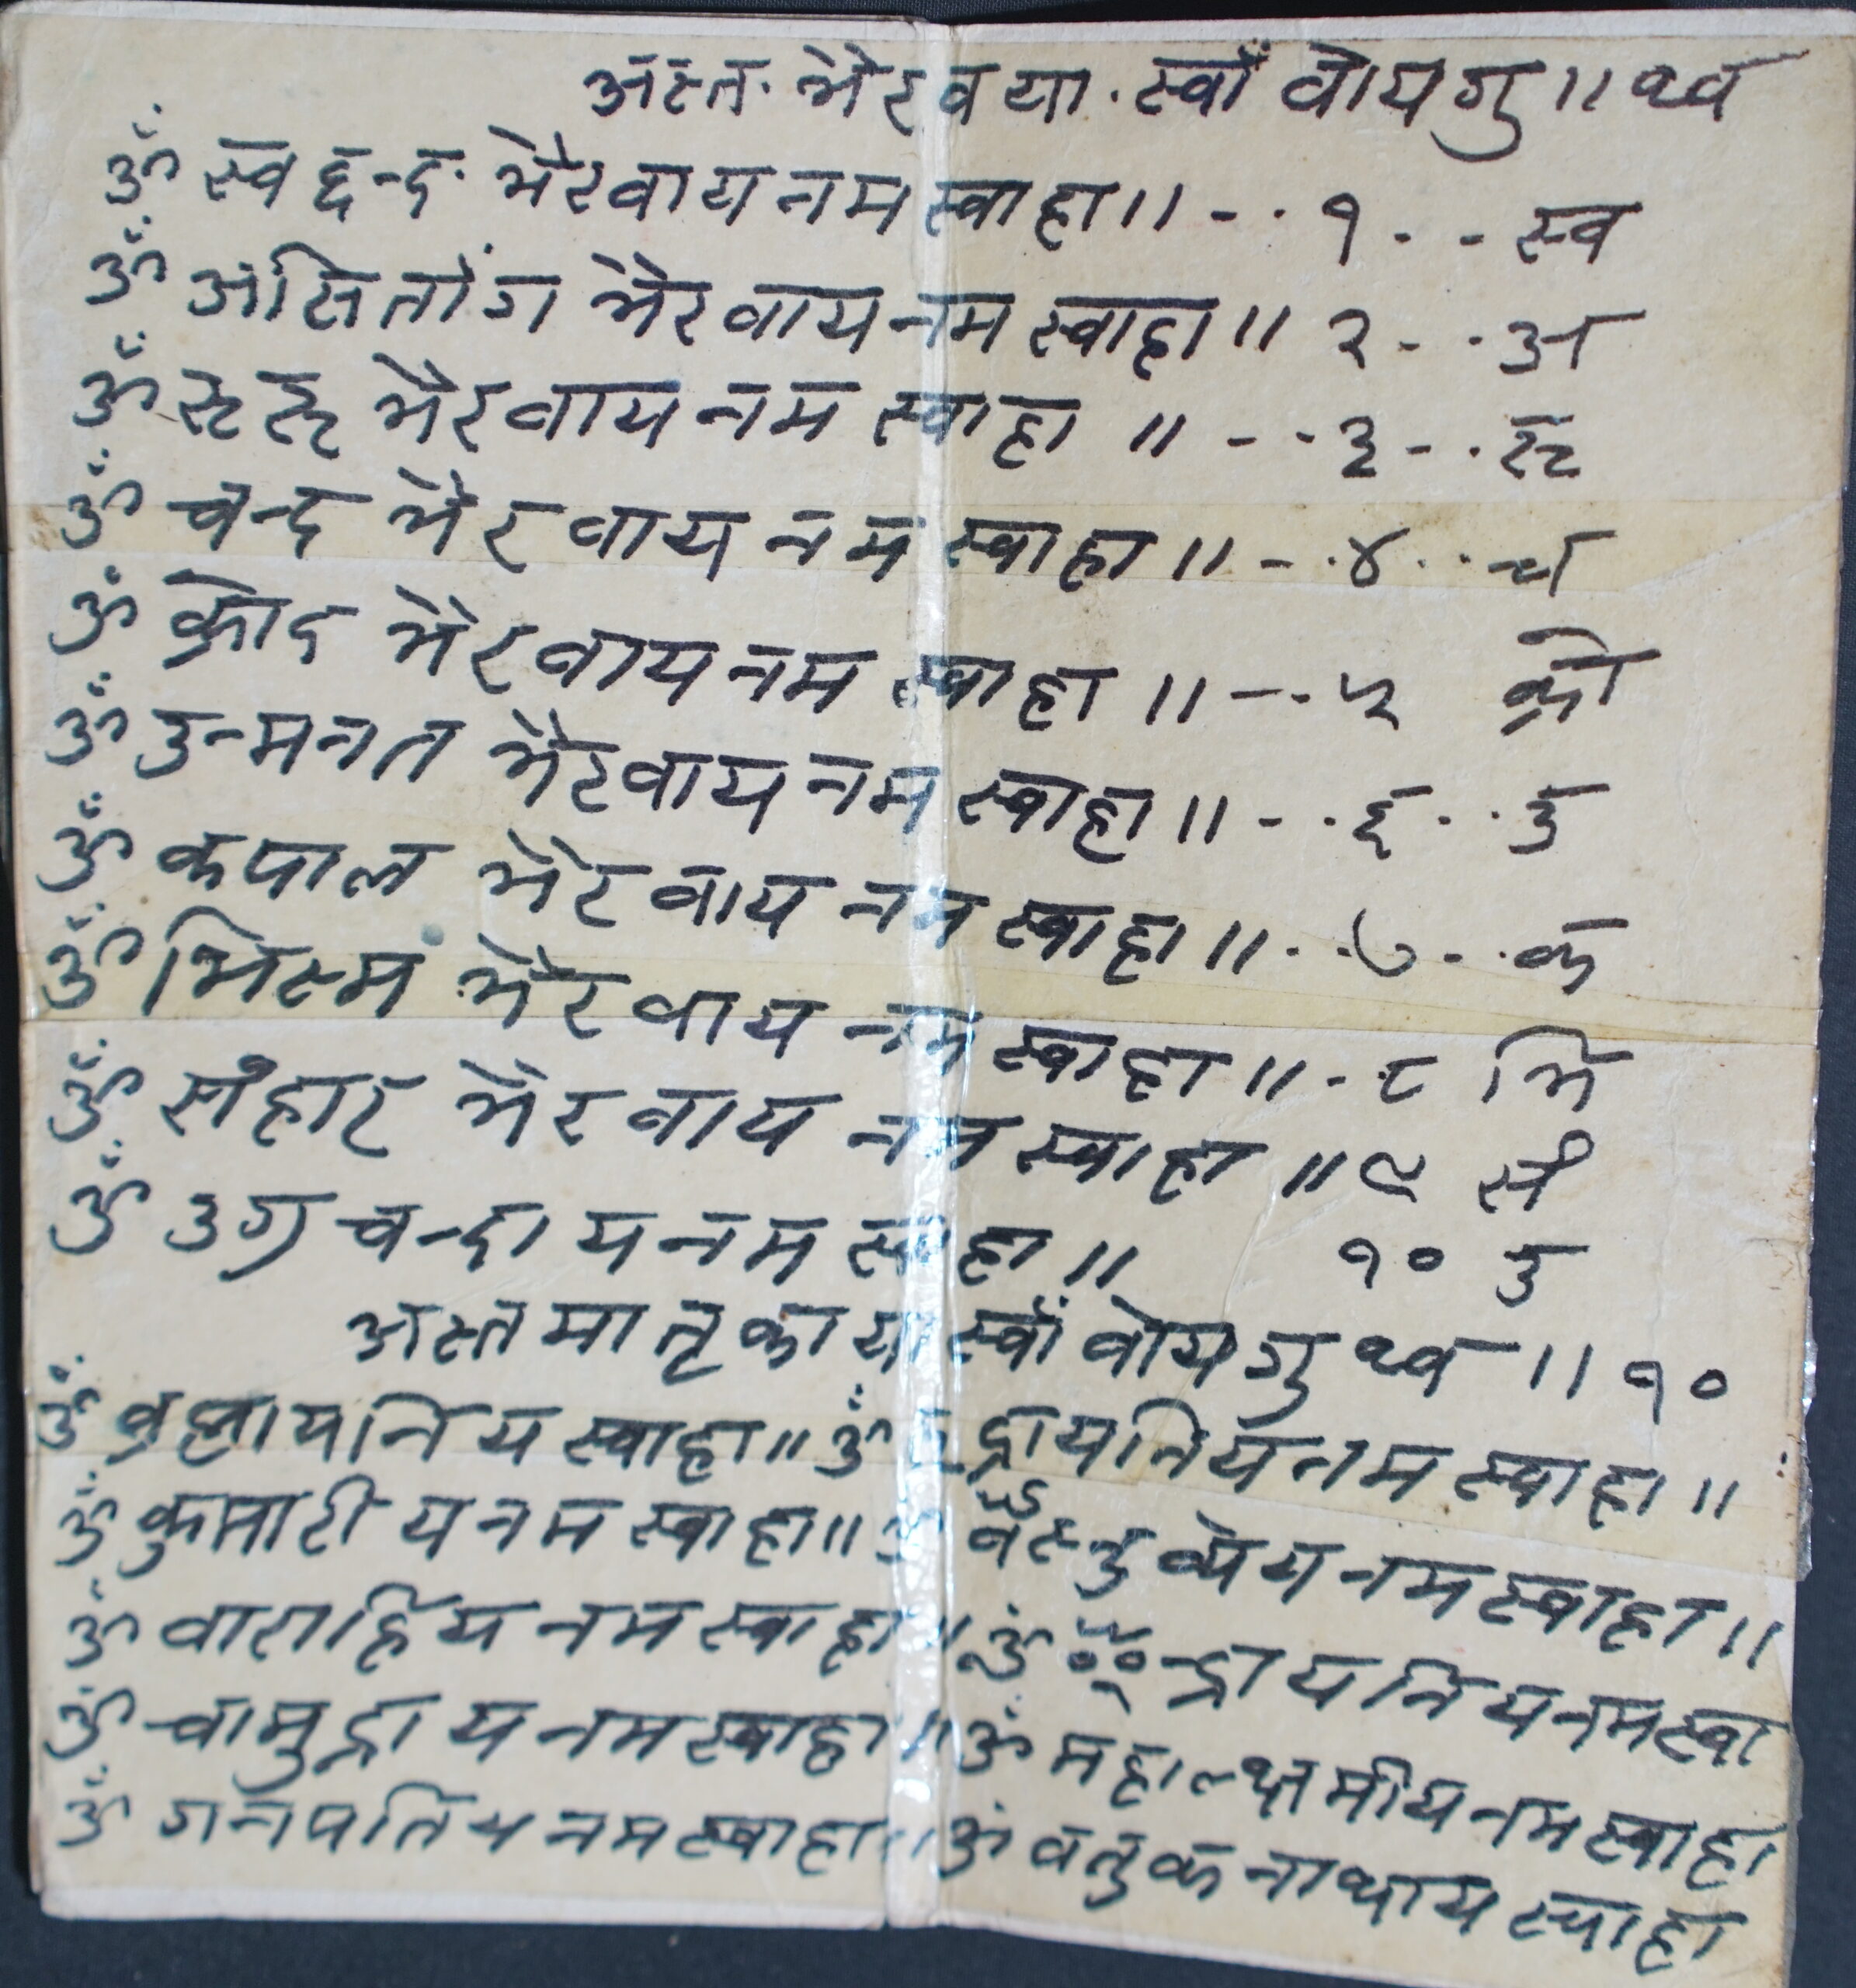 अस्त. भैरवया. स्वाँ वोयगु ॥ थ्व
ॐ स्वछन्द भैरवाय नम स्वाहा ॥ - - १ - - स्व
ॐ अंसितांग भैरवाय नम स्वाहा ॥ २ - - अ
ॐ रूरू भैरवाय नम स्वाहा ॥ - - ३ - - रू
ॐ चन्द भैरवाय नम स्वाहा ॥ - - ४ - - च
ॐ क्रोद भैरवाय नम स्वाहा ॥ - - ५ क्रो
ॐ उन्मनत भैरवाय नम स्वाहा ॥ - - ६ - - उ
ॐ कपाल भैरवाय नम स्वाहा ॥ - - ७ - - क
ॐ भिस्म भैरवाय नम स्वाहा ॥ - - ८ भि
ॐ संहार भैरवाय नम स्वाहा ॥ ९ सं
ॐ उग्र चन्दाय नम स्वाहा ॥ १० उ
अस्त मातृकाया स्वाँ वोयगु थ्व ॥ १०
ॐ ब्रह्मायनिय स्वाहा ॥ ॐ रुद्रायनिय नम स्वाहा ॥
ॐ कुमारीय नम स्वाहा ॥ ॐ नम स्वाहा ॥
ॐ वाराहिय नम स्वाहा ॥ ॐ न्द्रायनिय नम स्वा
ॐ चामुद्राय नम स्वाहा ॥ ॐ महाल्क्षमीय नम स्वाहा
ॐ गनपतिय नम स्वाहा ॥ ॐ वतुकनाथाय स्वाहा